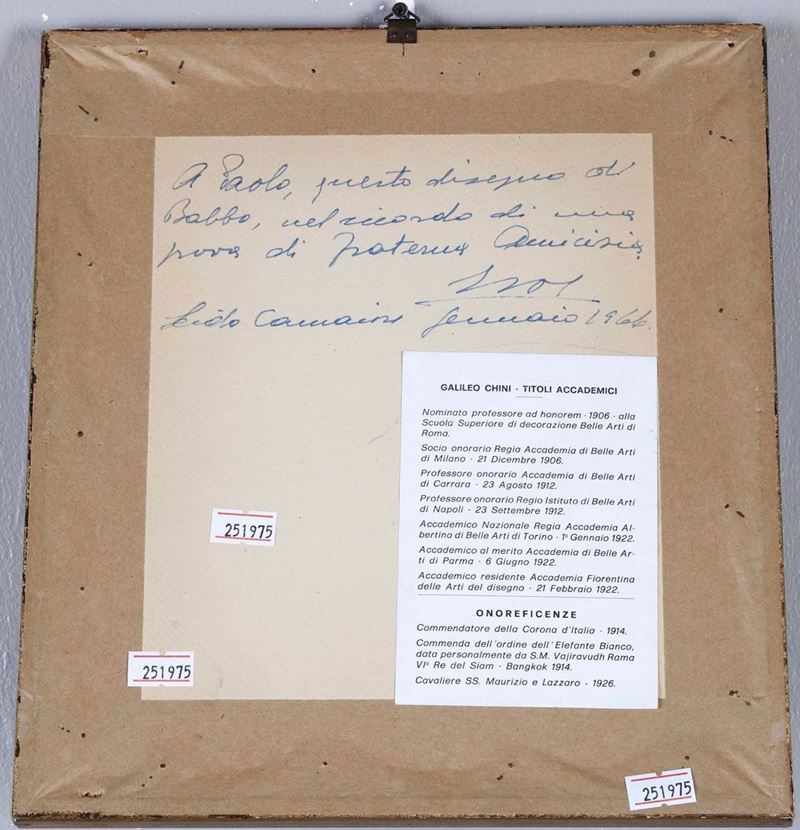 A Paolo, questo disegno di
Babbo, nel ricordo di una
prova di fraterna Amicizia.
Lido Camaiore Gennaio 1966.
GALILEO CHINI - TITOLI ACCADEMICI
Nominato professore ad honorem · 1906 · alla
Scuola Superiore di decorazione Belle Arti di
Roma.
Socio onorario Regia Accademia di Belle Arti
di Milano · 21 Dicembre 1906.
Professore onorario Accademia di Belle Arti
di Carrara · 23 Agosto 1912.
Professore onorario Regio Istituto di Belle Arti
di Napoli · 23 Settembre 1912.
Accademico Nazionale Regia Accademia Al-
bertina di Belle Arti di Torino · 1º Gennaio 1922.
Accademico al merito Accademia di Belle Ar-
ti di Parma · 6 Giugno 1922.
Accademico residente Accademia Fiorentina
delle Arti del disegno · 21 Febbraio 1922.
ONOREFICENZE
Commendatore della Corona d'Italia · 1914.
Commenda dell'ordine dell'Elefante Bianco,
data personalmente da S.M. Vajiravudh Rama
VIº Re del Siam · Bangkok 1914.
Cavaliere SS. Maurizio e Lazzaro - 1926.
251975
251975
251975